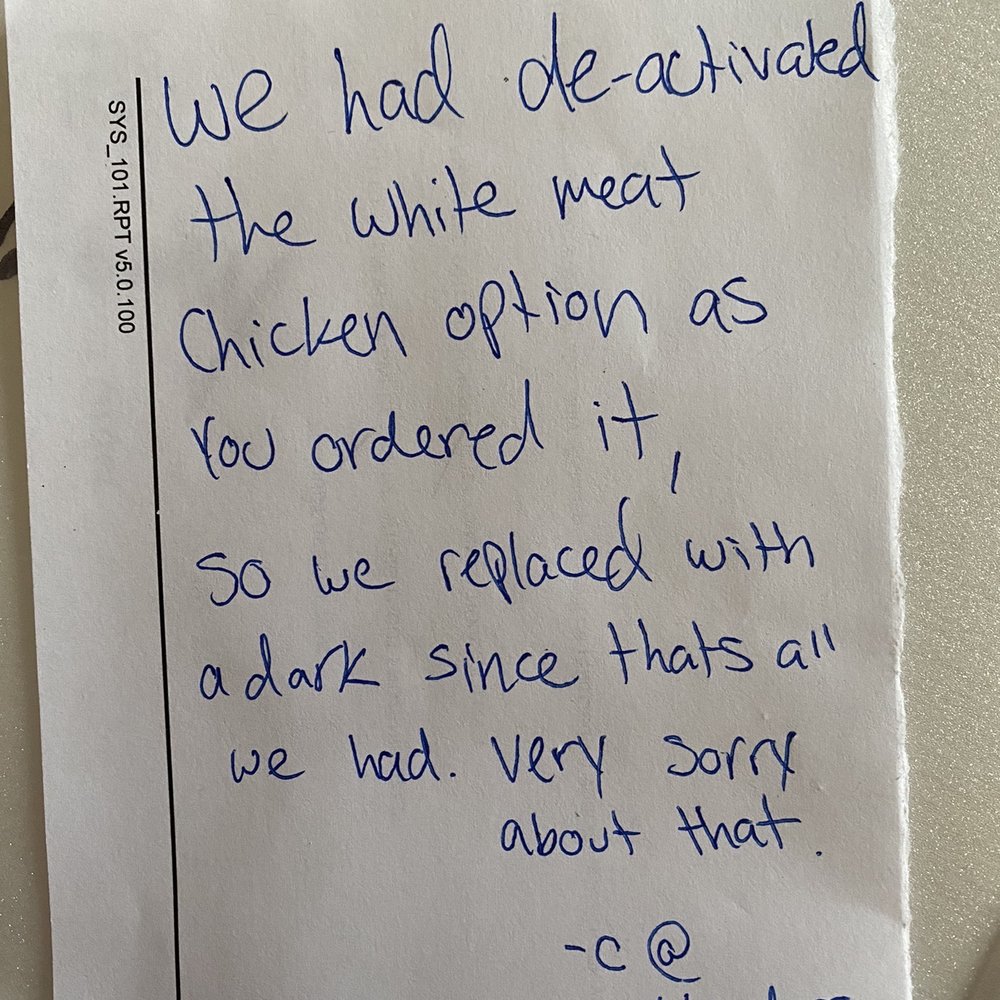 we had de-activated
the white meat
Chicken option as
You ordered it,
So we replaced with
a dark since thats all
we had. very sorry
about that.
-c @
SYS_101.RPT v5.0.100